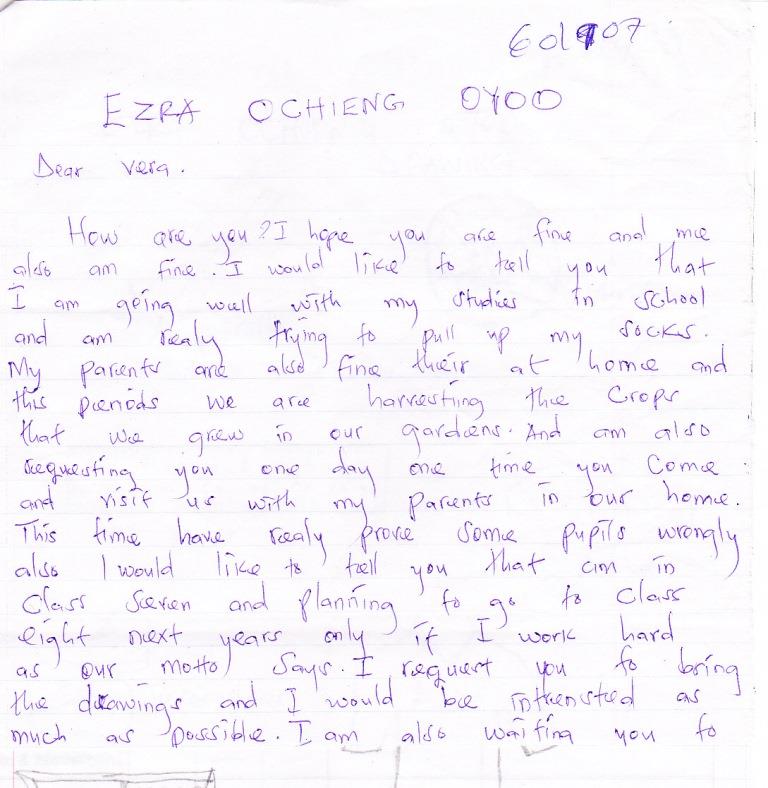 EZRA OCHIENG OYOO
Dear Vera.
How are you? I hope you are fine and me
also am fine. I would like to tell you that
I am going well with my studies in school
and am realy trying to pull up my socks.
My parents are also fine their at home and
this periods we are harvesting the crops
that we grew in our gardens. And am also
requesting you one day one time you come
and visit us with my parents in our home.
This time have realy prove some pupils wrongly
also I would like to tell you that am in
Class seven and planning to go to Class
eight next years only if I work hard
as our motto says. I request you to bring
the drawings and I would be intrensted as
much as possible. I am also waiting you to